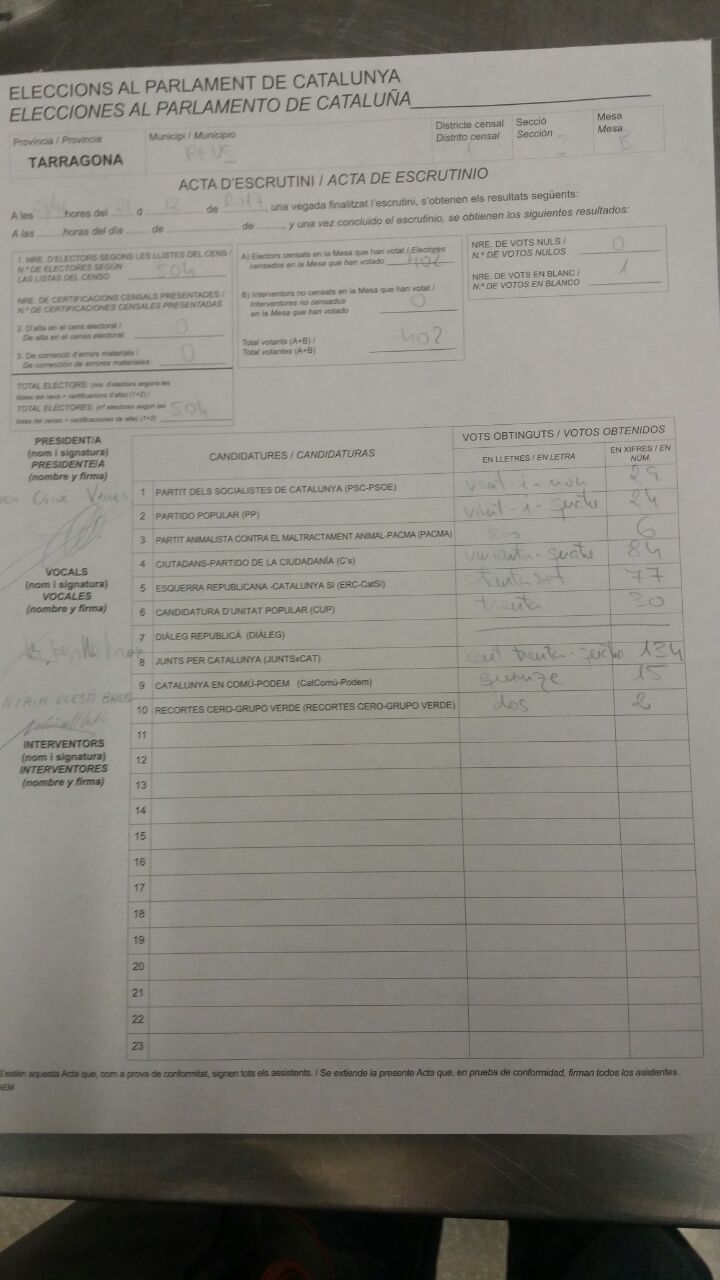 ELECCIONS AL PARLAMENT DE CATALUNYA
ELECCIONES AL PARLAMENTO DE CATALUÑA
Província / Provincia
TARRAGONA
Municipi / Municipio
REUS
Districte censal
Distrito censal
1
Secció
Sección
Mesa
Mesa
B
ACTA D'ESCRUTINI / ACTA DE ESCRUTINIO
A les hores del 21 d 12 de 2017, una vegada finalitzat l'escrutini, s'obtenen els resultats següents:
A las horas del día de de , y una vez concluido el escrutinio, se obtienen los siguientes resultados:
1. NRE. D'ELECTORS SEGONS LES LLISTES DEL CENS /
N.º DE ELECTORES SEGÚN
LAS LISTAS DEL CENSO 504
NRE. DE CERTIFICACIONS CENSALS PRESENTADES /
N.º DE CERTIFICACIONES CENSALES PRESENTADAS
2. D'alta en el cens electoral /
De alta en el censo electoral: 0
3. De correcció d'errors materials /
De corrección de errores materiales: 0
TOTAL ELECTORS: (nre. d'electors segons les
llistes del cens + certificacions d'alta) (1+2) /
TOTAL ELECTORES: (nº electores según las
listas del censo + certificaciones de alta) (1+2) 504
A) Electors censats en la Mesa que han votat / Electores
censados en la Mesa que han votado 402
B) Interventors no censats en la Mesa que han votat /
Interventores no censados
en la Mesa que han votado 0
Total votants (A+B) /
Total votantes (A+B) 402
NRE. DE VOTS NULS /
N.º DE VOTOS NULOS 0
NRE. DE VOTS EN BLANC /
N.º DE VOTOS EN BLANCO 1
PRESIDENT/A
(nom i signatura)
PRESIDENTE/A
(nombre y firma)
VOCALS
(nom i signatura)
VOCALES
(nombre y firma)
INTERVENTORS
(nom i signatura)
INTERVENTORES
(nombre y firma)
CANDIDATURES / CANDIDATURAS
VOTS OBTINGUTS / VOTOS OBTENIDOS
EN LLETRES / EN LETRA
EN XIFRES / EN NÚM.
1 PARTIT DELS SOCIALISTES DE CATALUNYA (PSC-PSOE) vint-i-nou 29
2 PARTIDO POPULAR (PP) vint-i-quatre 24
3 PARTIT ANIMALISTA CONTRA EL MALTRACTAMENT ANIMAL-PACMA (PACMA) 6
4 CIUTADANS-PARTIDO DE LA CIUDADANÍA (C's) vuitanta-quatre 84
5 ESQUERRA REPUBLICANA -CATALUNYA SI (ERC-CatSí) setanta set 77
6 CANDIDATURA D'UNITAT POPULAR (CUP) trenta 30
7 DIÀLEG REPUBLICÀ (DIÀLEG)
8 JUNTS PER CATALUNYA (JUNTSxCAT) cent trenta-quatre 134
9 CATALUNYA EN COMÚ-PODEM (CatComú-Podem) quinze 15
10 RECORTES CERO-GRUPO VERDE (RECORTES CERO-GRUPO VERDE) dos 2
11
12
13
14
15
16
17
18
19
20
21
22
23
S'estén aquesta Acta que, com a prova de conformitat, signen tots els assistents. / Se extiende la presente Acta que, en prueba de conformidad, firman todos los asistentes.